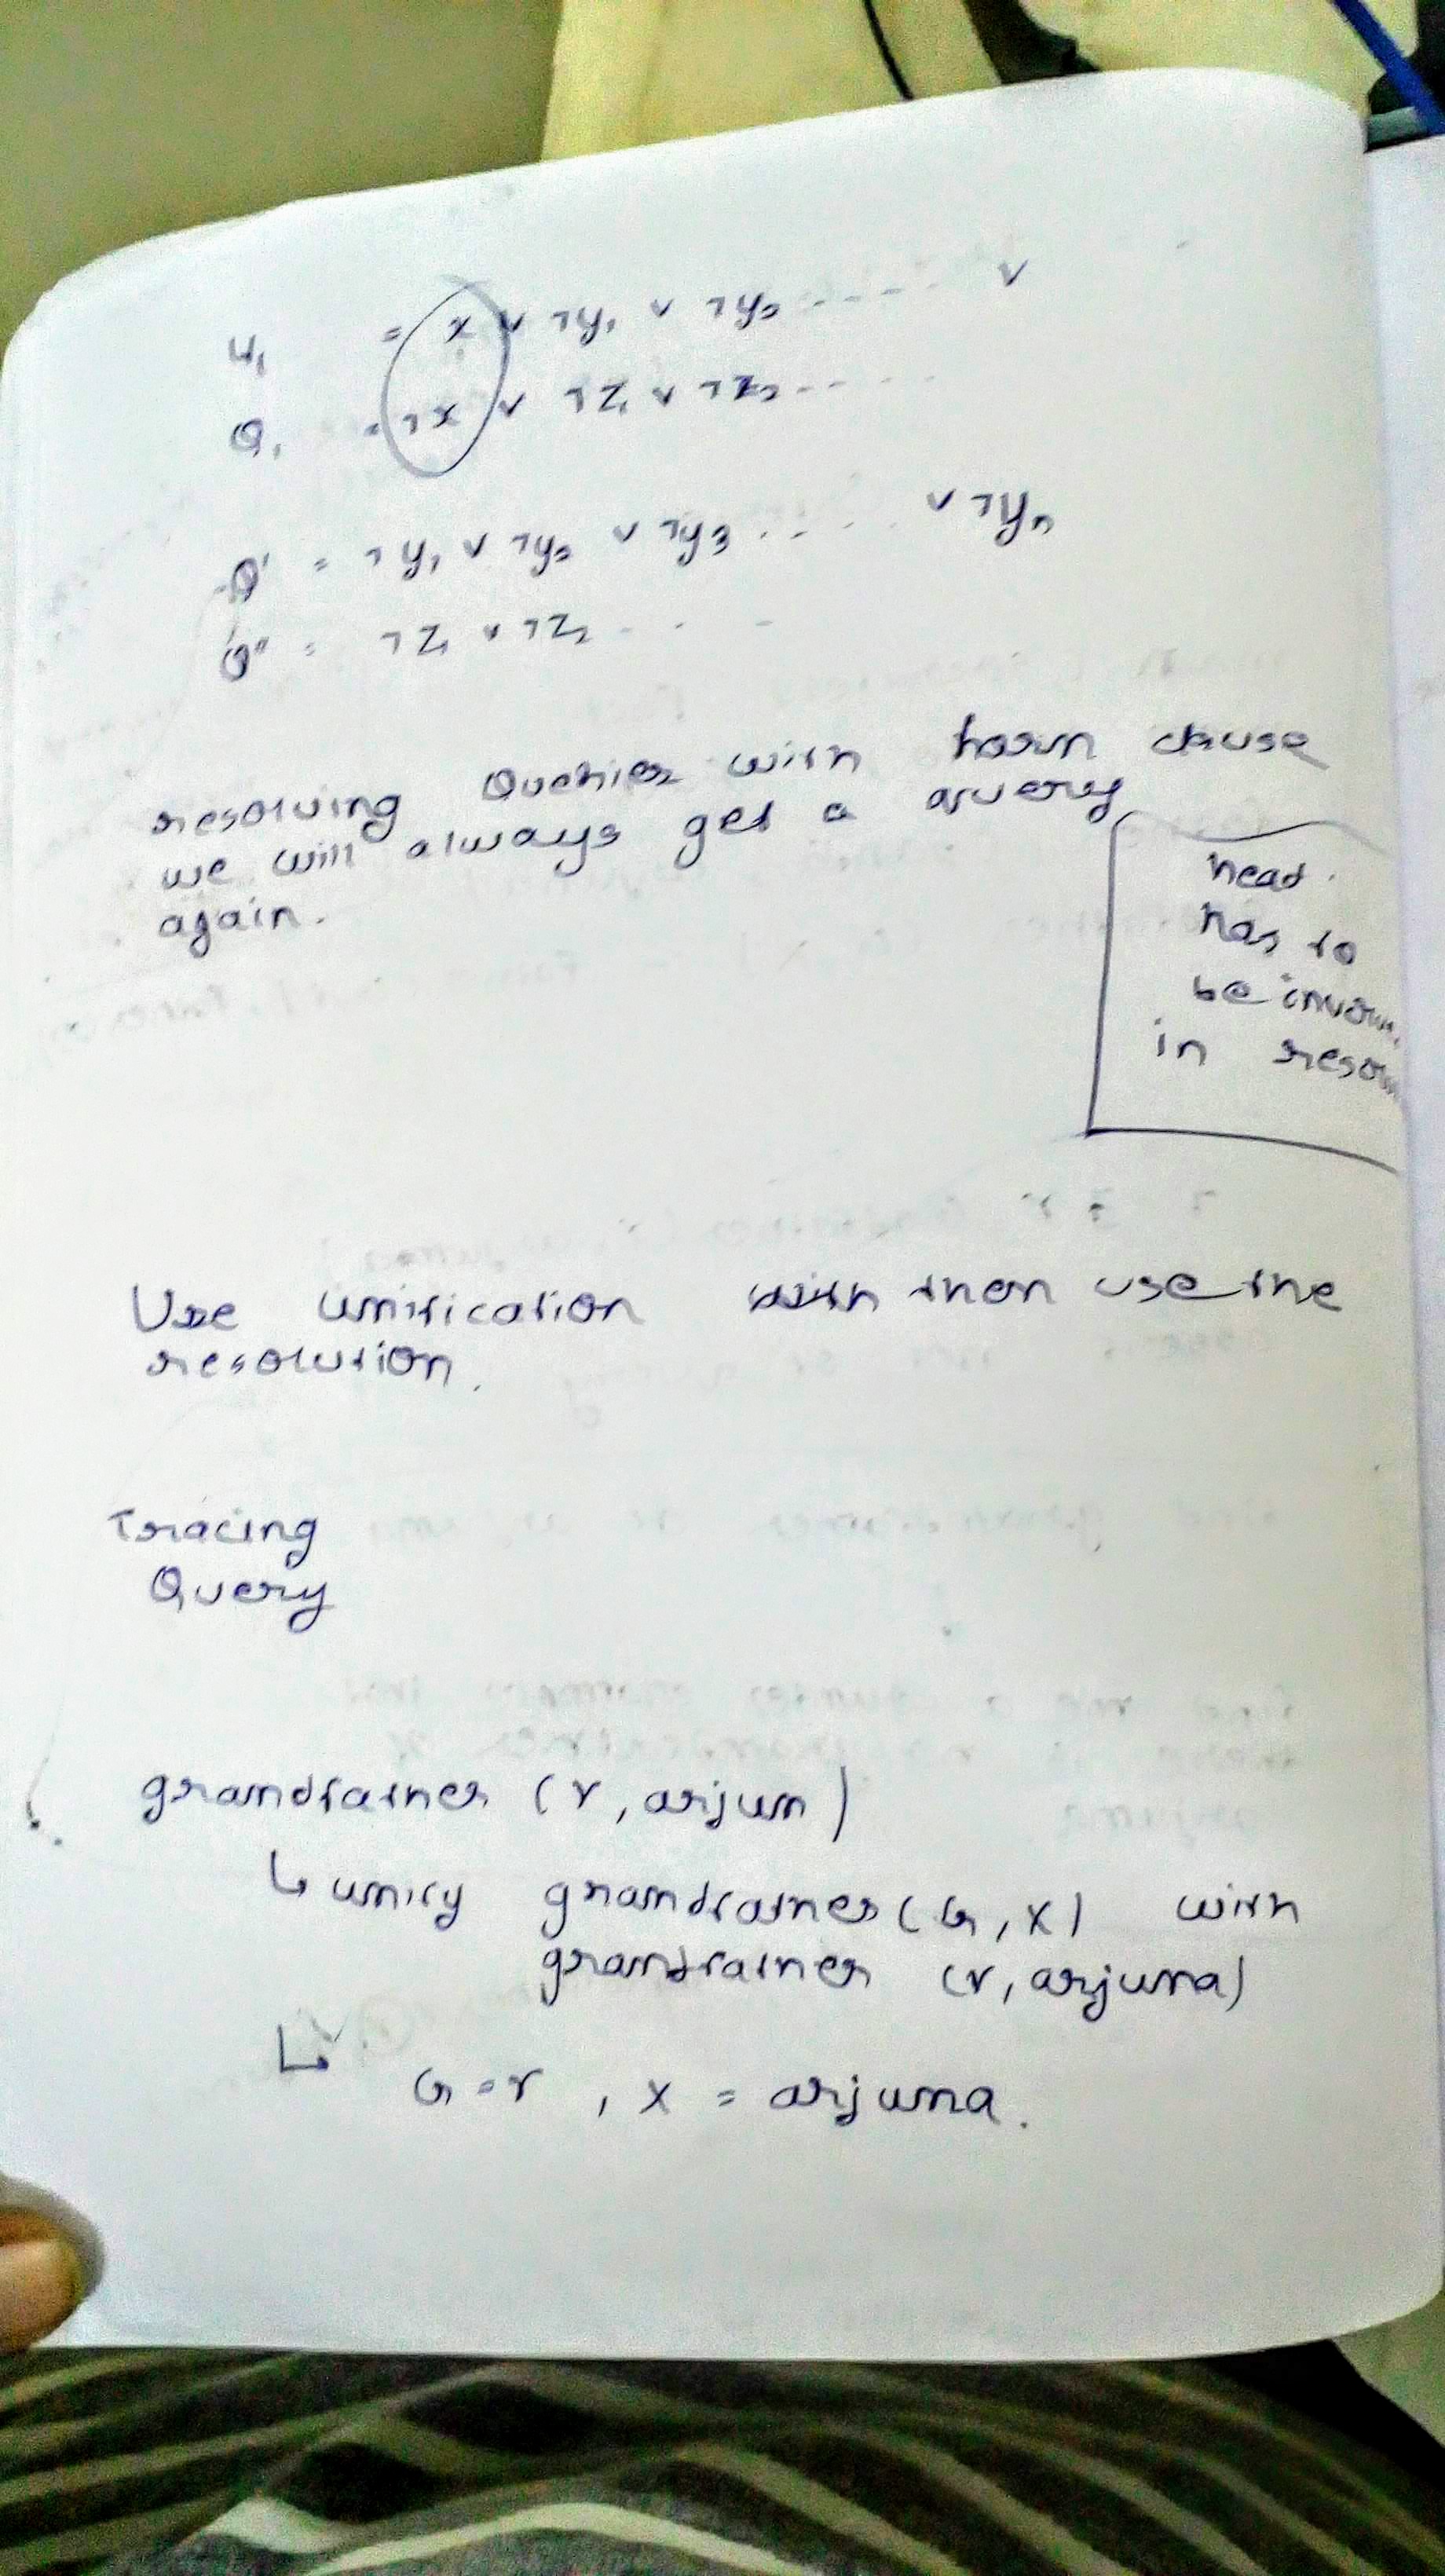 H₁ = x ∨ ¬y₁ ∨ ¬y₂ ----- ∨
Q₁ = ¬x ∨ ¬z₁ ∨ ¬z₂ -----
Q' = ¬y₁ ∨ ¬y₂ ∨ ¬y₃ ..... ∨ ¬yₙ
Q" = ¬z₁ ∨ ¬z₂ - - -
resolving Queries with horn clause
we will always get a query
again.
head
has to
be
in
Use unification then use the
resolution.
Tracing
Query
grandfather (Y, arjun)
↳ unify grandfather (G, X) with
grandfather (Y, arjuna)
↳ G = Y , X = arjuna.